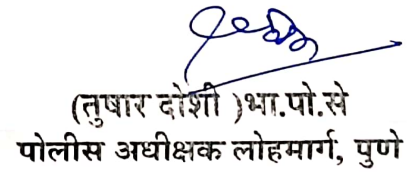 (तुषार दोशी )भा.पो.से
पोलीस अधीक्षक लोहमार्ग, पुणे